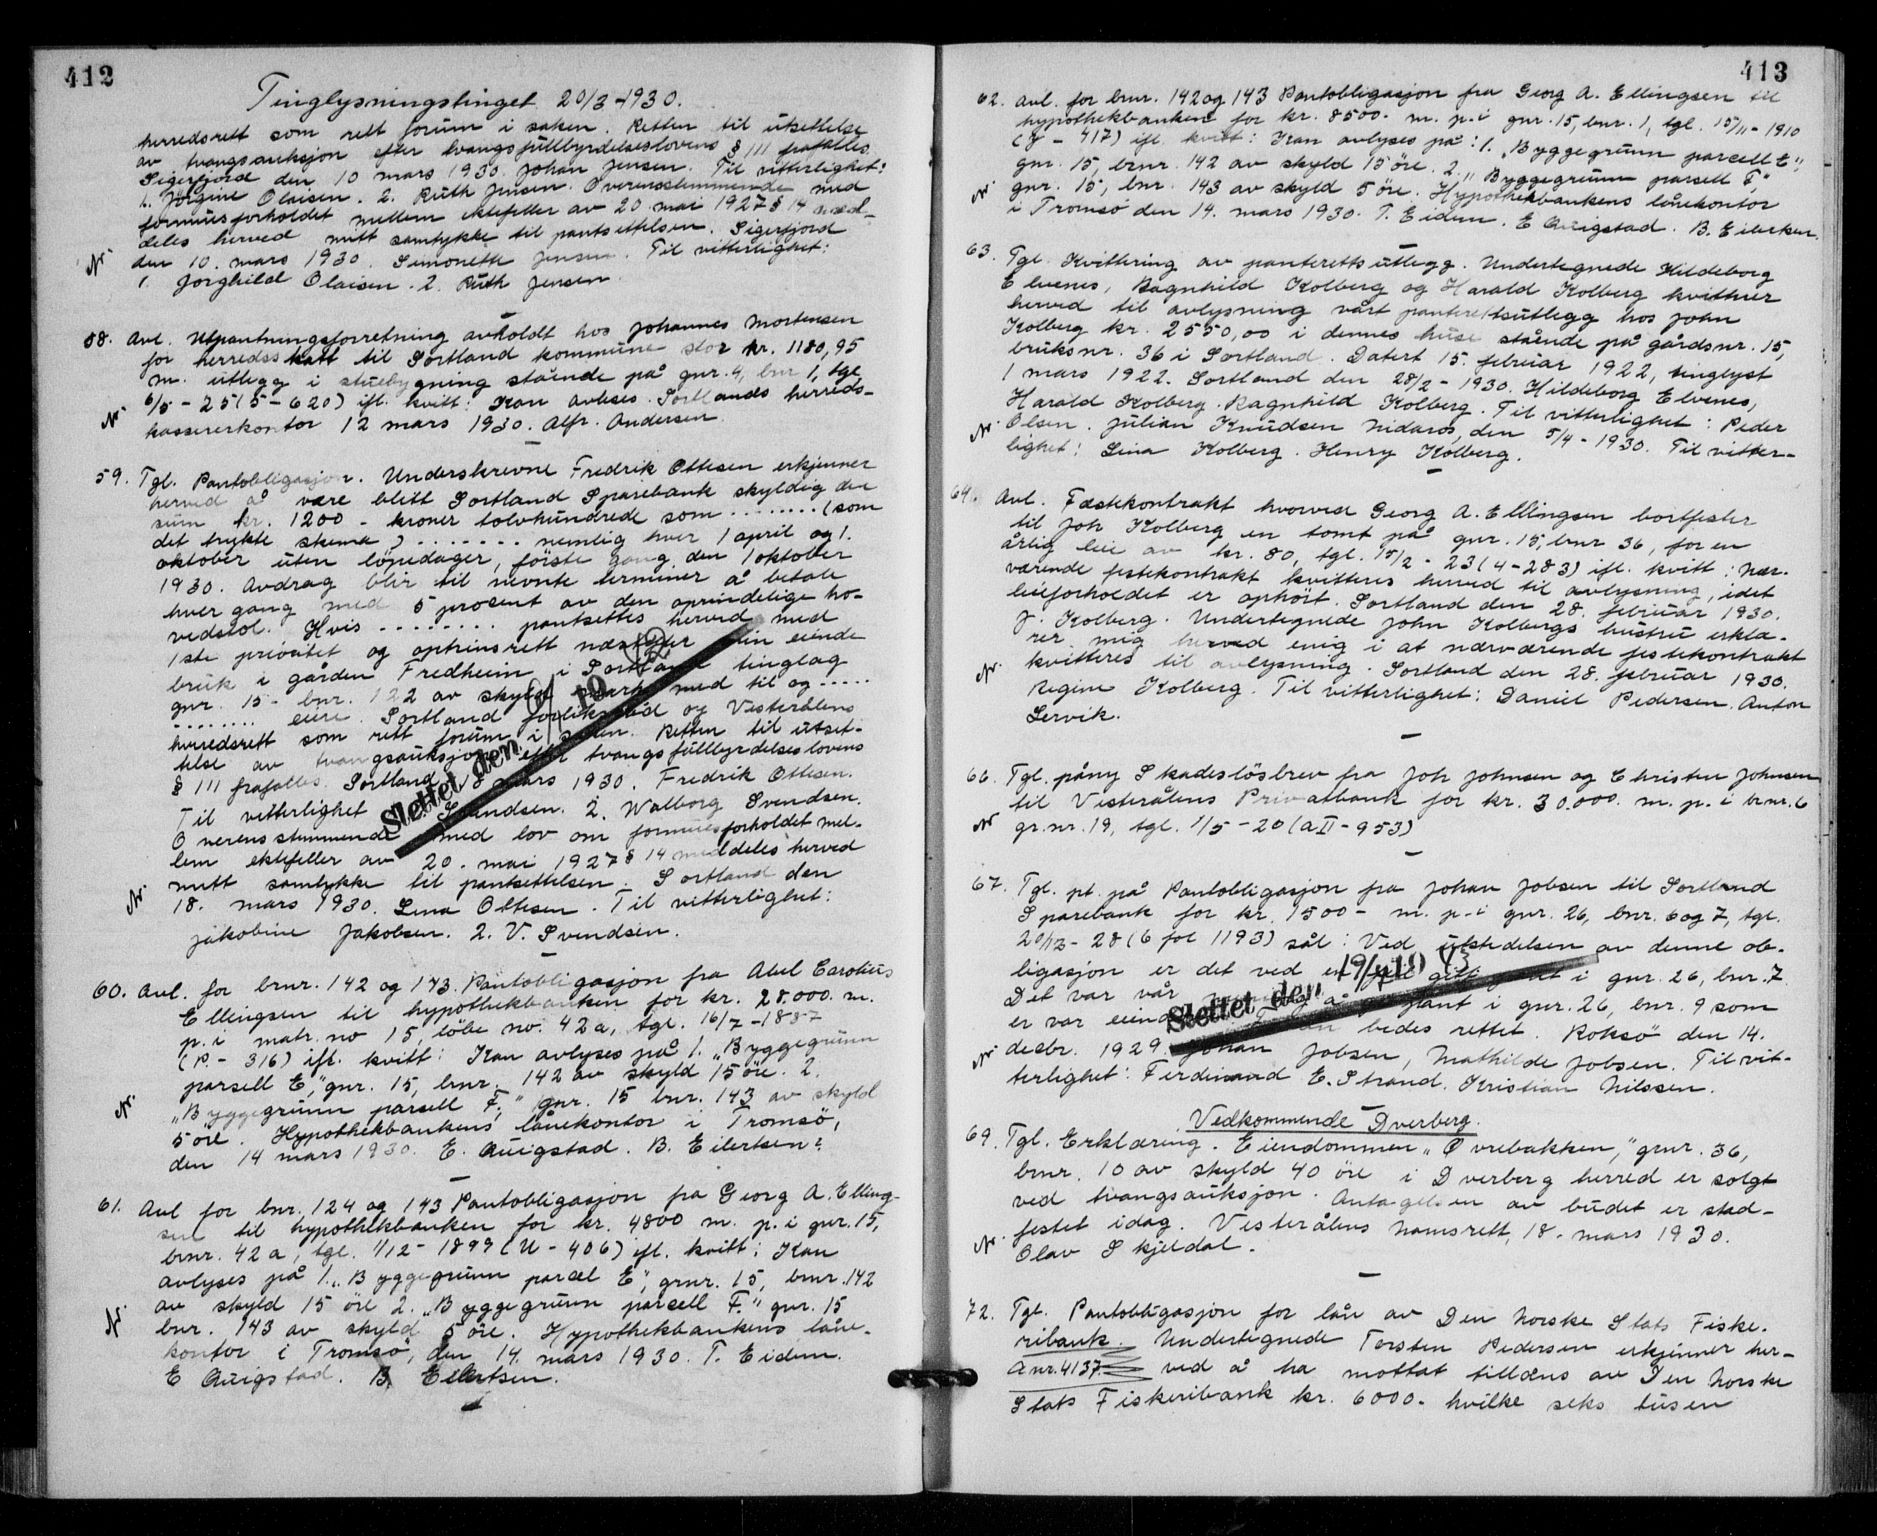 412
Tinglysningstinget 20/3-1930.
herredsrett som rett forum i saken. Retten til utsettelse
av tvangsauksjon efter tvangsfullbyrdelseslovens § 111 frafalles
Sigerfjord den 10 mars 1930. Johan Jensen. Til vitterlighet:
1. Jørgine Olaisen. 2. Ruth Jensen. Overensstemmende med
formuesforholdet mellem ektefeller av 20 mai 1927 § 14 med-
deles herved mitt samtykke til pantsettelsen. Sigerfjord
den 10. mars 1930. Simonette Jensen. Til vitterlighet:
1. Jorghild Olaisen. 2. Ruth Jensen
58. Avl. Utpantningsforretning avholdt hos Johannes Mortensen
for herredsskatt til Sortland kommune stor kr. 1180,95
m. utlegg i stuebygning stående på gnr. 4, bnr 1, tgl.
6/5-25 (5-620) ifl. kvitt: Kan avleses. Sortlands herreds-
kassererkontor 12 mars 1930. Alfr. Andersen.
59. Tgl. Pantobligasjon. Underskrevne Fredrik Ottesen erkjenner
herved å være blitt Sortland Sparebank skyldig den
sum kr. 1200 - kroner tolvhundrede som ........ (som
det trykte skema) ....... nemlig hver 1 april og 1.
oktober uten løpedager, første gang den 1 oktober
1930. Avdrag blir til nevnte terminer å betale
hver gang med 5 prosent av den oprindelige ho-
vedstol. Hvis ........ pantsettes herved med
1ste prioritet og optrinsrett næst efter min eiende
bruk i gården Fredheim i Sortland tinglag
gnr. 15 - bnr. 122 av skyld mark med til og .....
........ eiere. Sortland forliksråd og Vesterålens
herredsrett som rett forum i saken. Retten til utset-
telse av tvangsauksjon efter tvangsfullbyrdelseslovens
§ 111 frafalles. Sortland 18 mars 1930. Fredrik Ottesen.
Til vitterlighet Svendsen. 2. Walborg Svendsen.
Overensstemmende med lov om formuesforholdet mel-
lem ektefeller av 20. mai 1927 § 14 meddeles herved
mitt samtykke til pantsettelsen. Sortland den
18. mars 1930. Lina Ottesen. Til vitterlighet:
Jakobine Jakobsen. 2. V. Svendsen.
Slettet den
60. Avl. for bnr. 142 og 143. Pantobligasjon fra Abel Carolius
Ellingsen til hypothekbanken for kr. 28.000. m.
p. i matr. no 15, løbe no. 42a, tgl. 16/7-1887
(P. - 316) ifl. kvitt: Kan avlyses på 1. "Byggegrunn
parsell E," gnr. 15, bnr. 142 av skyld 15 öre. 2.
"Byggegrunn parsell F," gnr. 15 bnr. 143 av skyld
5 öre. Hypothekbankens lånekontor i Tromsö,
den 14 mars 1930. E. Auigstad. B. Eilertsen.
61. Avl for bnr. 124 og 143 Pantobligasjon fra Georg A. Elling-
sen til hypothekbanken for kr. 4800 m. p. i gnr. 15,
bnr. 42a, tgl. 1/12-1899 (U-406) ifl. kvitt: Kan
avlyses på 1. "Byggegrunn parcel E," gnr. 15, bnr. 142
av skyld 15 öre 2. "Byggegrunn parsell F." gnr. 15
bnr. 143 av skyld 5 öre. Hypothekbankens låne-
kontor i Tromsö, den 14. mars 1930. T. Eidem.
E Auigstad. B. Eilertsen.
413
62. Avl. for bnr. 142 og 143 Pantobligasjon fra Georg A. Ellingsen til
hypothekbanken for kr. 8500. m. p. i gnr. 15, bnr. 1, tgl. 15/11-1910
(Y - 417) ifl. kvitt: Kan avlyses på: 1. "Byggegrunn parsell E",
gnr. 15, bnr. 142 av skyld 15 öre. 2. "Byggegrunn parsell F,"
gnr. 15, bnr. 143 av skyld 5 öre. Hypothekbankens lånekontor
i Tromsö den 14. mars 1930. T. Eidem. E Auigstad. B. Eilertsen.
63. Tgl. Kvittering av panterettsutlegg. Undertegnede Hildeborg
Elvenes, Ragnhild Kolberg og Harald Kolberg kvitterer
herved til avlysning vårt panterettsutlegg hos John
Kolberg kr. 2550,00 i dennes huse stående på gårdsnr. 15,
bruksnr. 36 i Sortland. Datert 15. februar 1922, tinglyst
1 mars 1922. Sortland den 28/2-1930. Hildeborg Elvenes,
Harald Kolberg. Ragnhild Kolberg. Til vitterlighet: Peder
Olsen. Julian Knudsen Nidaros, den 5/4-1930. Til vitter-
lighet: Lina Kolberg. Henry Kolberg.
64. Avl. Festekontrakt hvorved Georg A. Ellingsen bortfester
til Joh Kolberg en tomt på gnr. 15, bnr 36, for en
årlig leie av kr. 80, tgl. 15/2-23 (4-283) ifl. kvitt: Nær-
værende festekontrakt kvitteres herved til avlysning, idet
leieforholdet er ophört. Sortland den 28. februar 1930.
J. Kolberg. Undertegnede John Kolbergs hustru erklæ-
rer mig herved enig i at nærværende festekontrakt
kvitteres til avlysning. Sortland den 28. februar 1930.
Regine Kolberg. Til vitterlighet: Daniel Pedersen. Anton
Servik.
66. Tgl. påny Skadeslösbrev fra Joh Johnsen og Christen Johnsen
til Vesterålens Privatbank for kr. 30.000. m. p. i bnr. 6
gr. nr. 19, tgl. 1/5-20 (a II-953)
67. Tgl. pt. på Pantobligasjon fra Johan Jobsen til Sortland
Sparebank for kr. 1500- m. p. i gnr. 26, bnr. 6 og 7, tgl.
20/12-28 (6 fol 1193) sål: Ved utstedelsen av denne ob-
ligasjon er det ved en feil gitt pant i gnr. 26, bnr. 7.
Det var vår mening å gi pant i gnr. 26, bnr. 9 som
er vår eiendom. bedes rettet. Roksö den 14.
decbr. 1929. Johan Jobsen, Mathilde Jobsen. Til vit-
terlighet: Ferdinand E. Strand. Kristian Nilssen.
Slettet den 19/4
Vedkommende Dverberg.
69. Tgl. Erklæring. Eiendommen "Övrebakken," gnr. 36,
bnr. 10 av skyld 40 öre i Dverberg herred er solgt
ved tvangsauksjon. Antagelsen av budet er stad-
festet idag. Vesterålens namsrett, 18. mars 1930.
Olav Skjeldal.
72. Tgl. Pantobligasjon for lån av Den Norske Stats Fiske-
ribank. Undertegnede Torsten Pedersen erkjenner her-
A nr. 4137 ved å ha mottat tillåns av Den Norske
Stats Fiskeribank kr. 6000. hvilke seks tusen